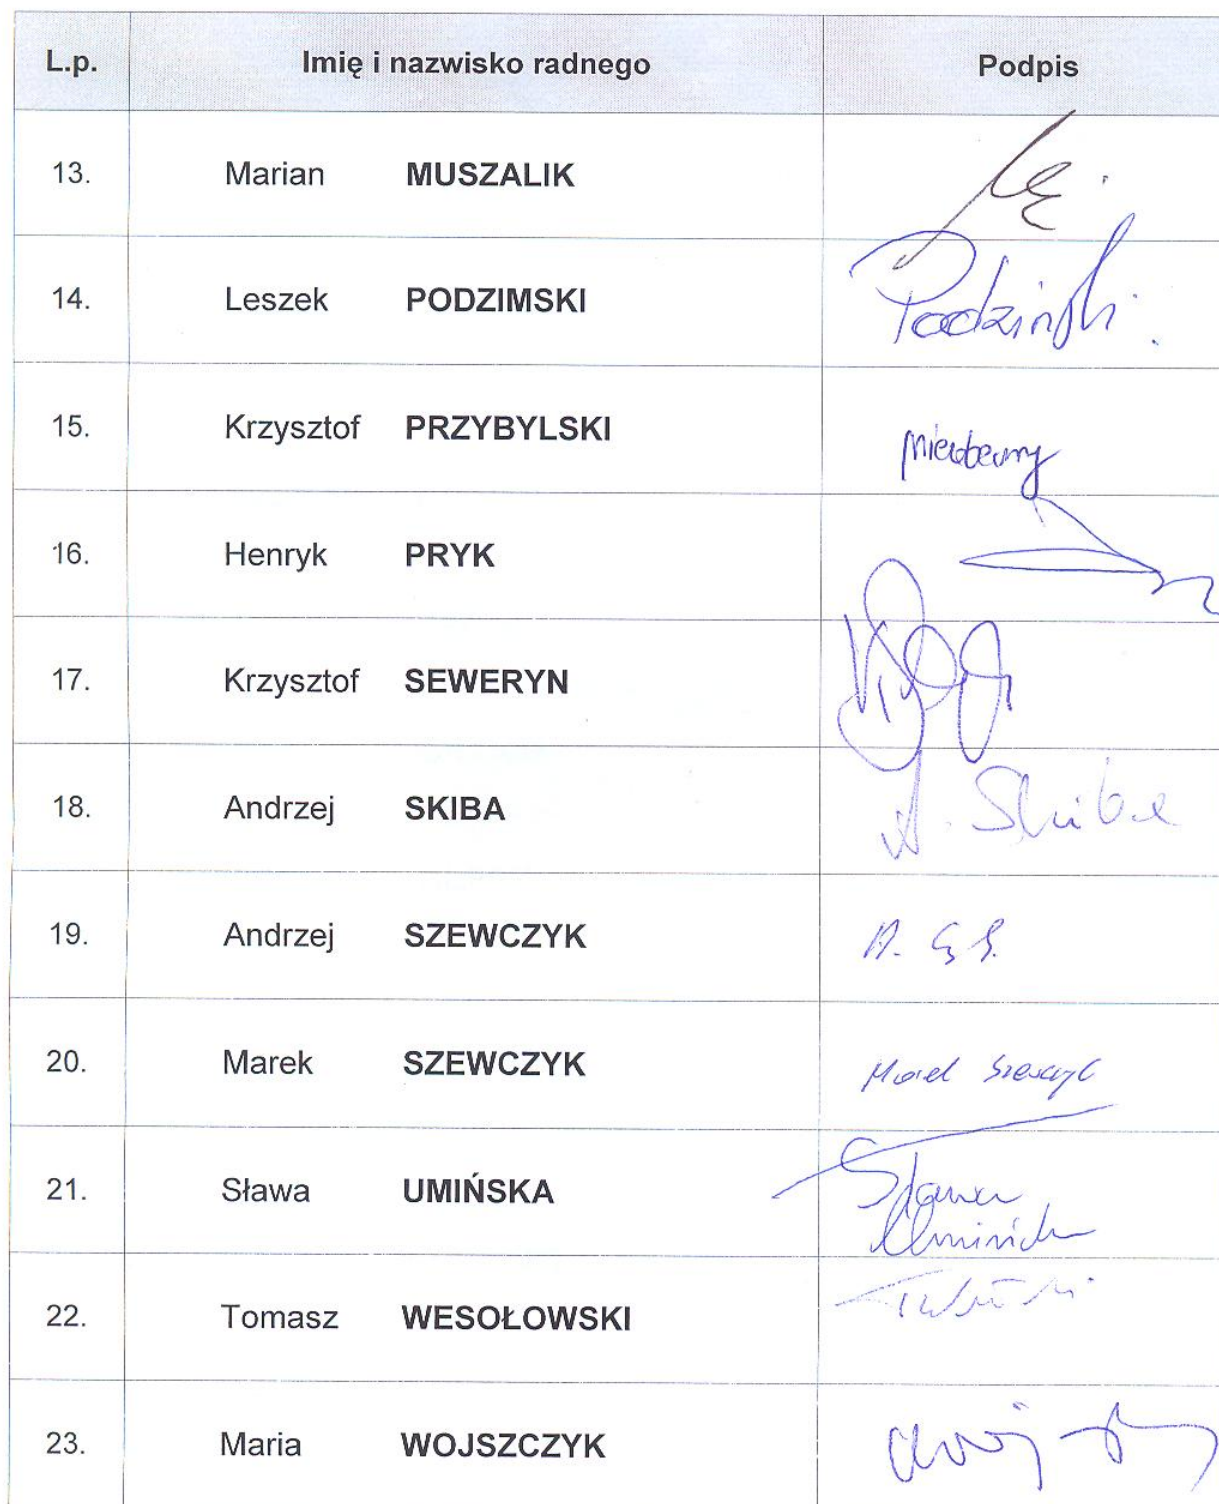 L.p. Imię i nazwisko radnego Podpis
13. Marian MUSZALIK
14. Leszek PODZIMSKI Podzimski
15. Krzysztof PRZYBYLSKI nieobecny
16. Henryk PRYK
17. Krzysztof SEWERYN
18. Andrzej SKIBA A. Skiba
19. Andrzej SZEWCZYK
20. Marek SZEWCZYK Marek Szewczyk
21. Sława UMIŃSKA Sława
Umińska
22. Tomasz WESOŁOWSKI
23. Maria WOJSZCZYK